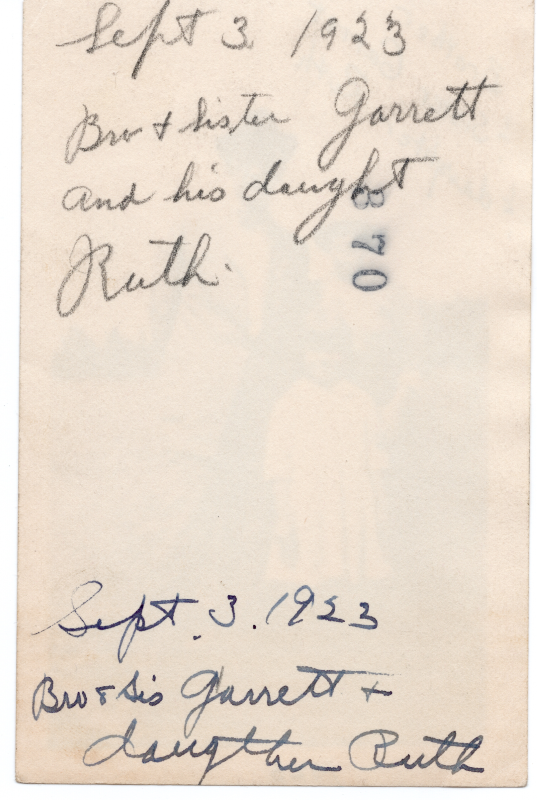 Sept 3 1923
Bro & Sister Garrett
and his daught
Ruth.
870
Sept. 3. 1923
Bro & Sis Garrett &
daugther Ruth